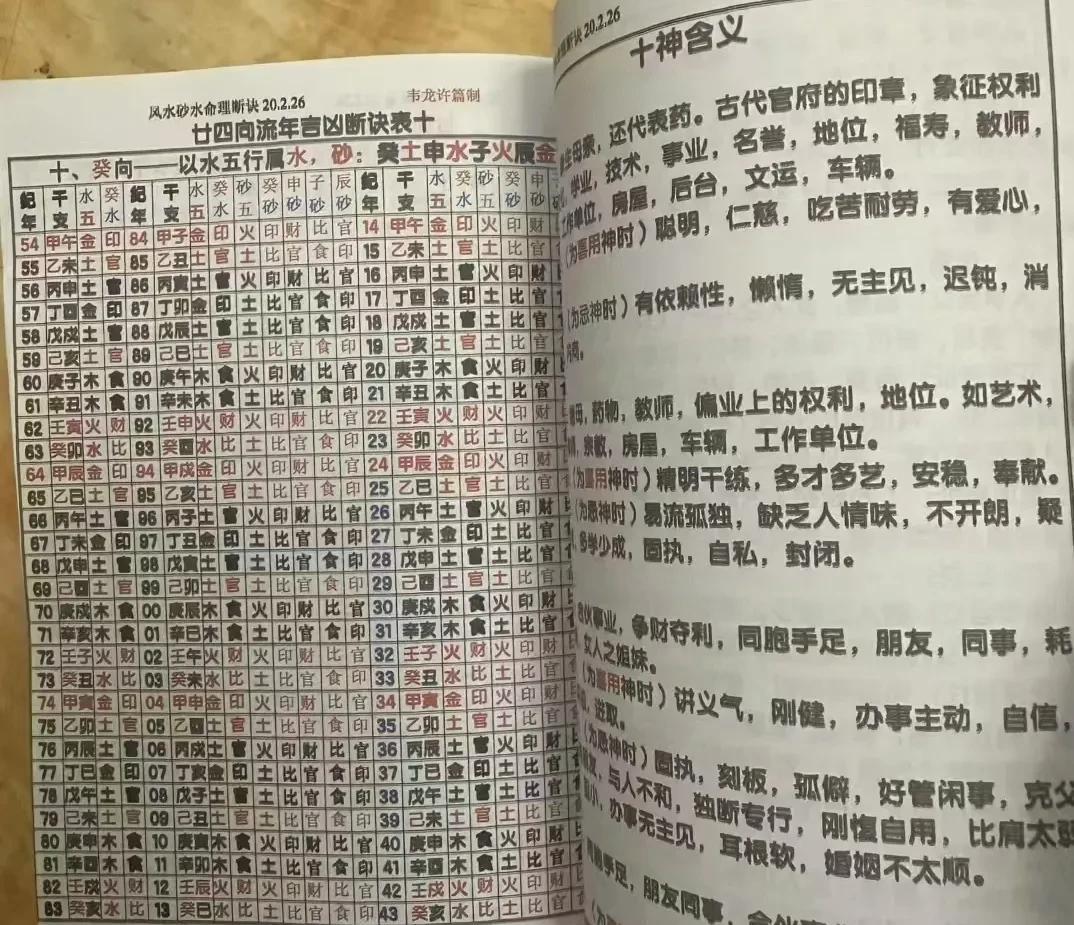 风水砂水命理断诀 20.2.26 韦龙许篇制
廿四向流年吉凶断诀表十
十、癸向——以水五行属水，砂：癸土申水子火辰金
纪 干 水 癸 纪 干 水 癸 砂 癸 申 子 辰 纪 干 水 癸 砂 癸 申
年 支 五 水 年 支 五 水 五 砂 砂 砂 砂 年 支 五 水 五 砂 砂
54 甲午 金 印 84 甲子 金 印 火 印 财 比 官 14 甲午 金 印 火 印 财
55 乙未 土 官 85 乙丑 土 官 土 比 官 食 印 15 乙未 土 官 土 比 官
56 丙申 土 官 86 丙寅 土 官 火 印 财 比 官 16 丙申 土 官 火 印 财
57 丁酉 金 印 87 丁卯 金 印 土 比 官 食 印 17 丁酉 金 印 土 比 官
58 戊戌 土 官 88 戊辰 土 官 土 比 官 食 印 18 戊戌 土 官 土 比 官
59 己亥 土 官 89 己巳 土 官 土 比 官 食 印 19 己亥 土 官 土 比 官
60 庚子 木 食 90 庚午 木 食 火 印 财 比 官 20 庚子 木 食 火 印 财
61 辛丑 木 食 91 辛未 木 食 土 比 官 食 印 21 辛丑 木 食 土 比 官
62 壬寅 火 财 92 壬申 火 财 火 印 财 比 官 22 壬寅 火 财 火 印 财
63 癸卯 水 比 93 癸酉 水 比 土 比 官 食 印 23 癸卯 水 比 土 比 官
64 甲辰 金 印 94 甲戌 金 印 火 印 财 比 官 24 甲辰 金 印 火 印 财
65 乙巳 土 官 95 乙亥 土 官 土 比 官 食 印 25 乙巳 土 官 土 比 官
66 丙午 土 官 96 丙子 土 官 火 印 财 比 官 26 丙午 土 官 火 印 财
67 丁未 金 印 97 丁丑 金 印 土 比 官 食 印 27 丁未 金 印 土 比 官
68 戊申 土 官 98 戊寅 土 官 土 比 官 食 印 28 戊申 土 官 土 比 官
69 己酉 土 官 99 己卯 土 官 土 比 官 食 印 29 己酉 土 官 土 比 官
70 庚戌 木 食 00 庚辰 木 食 火 印 财 比 官 30 庚戌 木 食 火 印 财
71 辛亥 木 食 01 辛巳 木 食 土 比 官 食 印 31 辛亥 木 食 土 比 官
72 壬子 火 财 02 壬午 火 财 火 印 财 比 官 32 壬子 火 财 火 印 财
73 癸丑 水 比 03 癸未 水 比 土 比 官 食 印 33 癸丑 水 比 土 比 官
74 甲寅 金 印 04 甲申 金 印 火 印 财 比 官 34 甲寅 金 印 火 印 财
75 乙卯 土 官 05 乙酉 土 官 土 比 官 食 印 35 乙卯 土 官 土 比 官
76 丙辰 土 官 06 丙戌 土 官 火 印 财 比 官 36 丙辰 土 官 火 印 财
77 丁巳 金 印 07 丁亥 金 印 土 比 官 食 印 37 丁巳 金 印 土 比 官
78 戊午 土 官 08 戊子 土 官 土 比 官 食 印 38 戊午 土 官 土 比 官
79 己未 土 官 09 己丑 土 官 土 比 官 食 印 39 己未 土 官 土 比 官
80 庚申 木 食 10 庚寅 木 食 火 印 财 比 官 40 庚申 木 食 火 印 财
81 辛酉 木 食 11 辛卯 木 食 土 比 官 食 印 41 辛酉 木 食 土 比 官
82 壬戌 火 财 12 壬辰 火 财 火 印 财 比 官 42 壬戌 火 财 火 印 财
83 癸亥 水 比 13 癸巳 水 比 土 比 官 食 印 43 癸亥 水 比 土 比 官
断诀 20.2.26
十神含义
生母亲，还代表药。古代官府的印章，象征权利
学业，技术，事业，名誉，地位，福寿，教师，
工作单位，房屋，后台，文运，车辆。
（为喜用神时）聪明，仁慈，吃苦耐劳，有爱心，
（为忌神时）有依赖性，懒惰，无主见，迟钝，消
母，药物，教师，偏业上的权利，地位。如艺术，
宗教，房屋，车辆，工作单位。
（为喜用神时）精明干练，多才多艺，安稳，奉献。
（为忌神时）易流孤独，缺乏人情味，不开朗，疑
多学少成，固执，自私，封闭。
合伙事业，争财夺利，同胞手足，朋友，同事，耗
女人之姐妹。
（为喜用神时）讲义气，刚健，办事主动，自信，
进取。
（为忌神时）固执，刻板，孤僻，好管闲事，克父
与人不和，独断专行，刚愎自用，比肩太弱
小，办事无主见，耳根软，婚姻不太顺。
手足，朋友同事，合伙